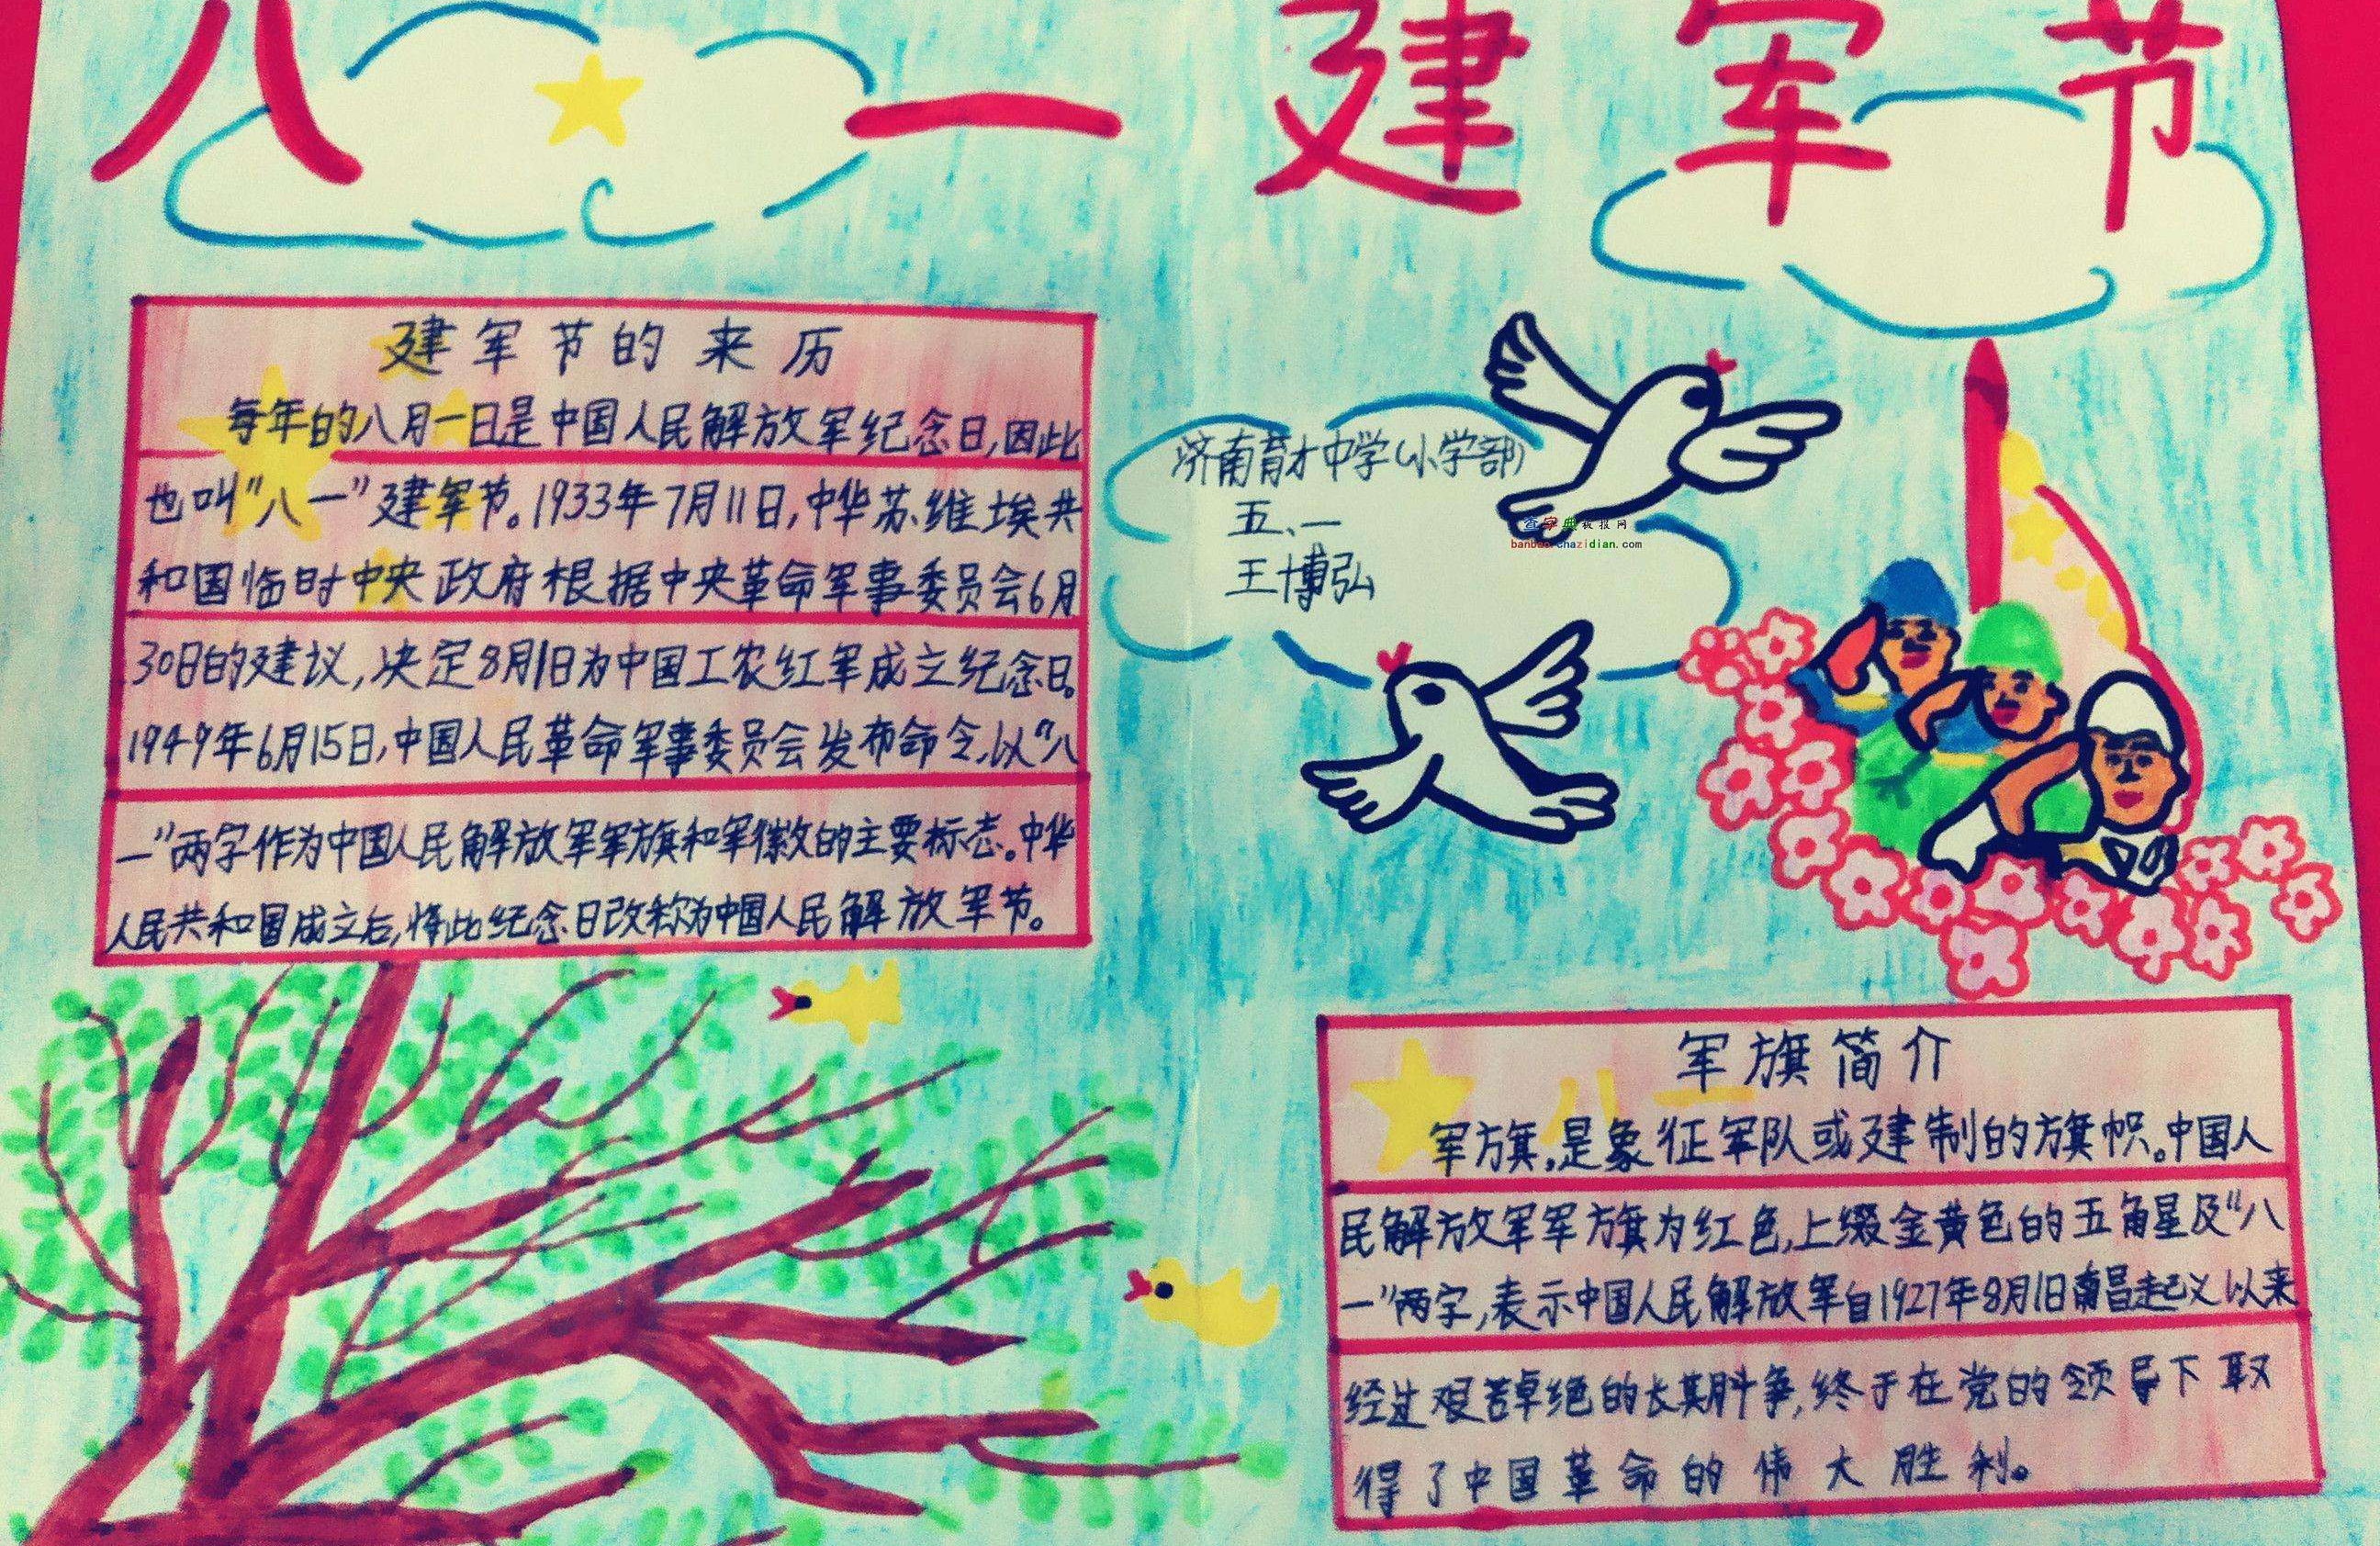 八一建军节
建军节的来历
每年的八月一日是中国人民解放军纪念日,因此
也叫"八一"建军节。1933年7月11日,中华苏维埃共
和国临时中央政府根据中央革命军事委员会6月
30日的建议,决定8月1日为中国工农红军成立纪念日。
1949年6月15日,中国人民革命军事委员会发布命令,以"八
一"两字作为中国人民解放军军旗和军徽的主要标志。中华
人民共和国成立后,将此纪念日改称为中国人民解放军节。
济南育才中学(小学部)
五、一
王博弘
查字典板报网
banbao.chazidian.com
八一
军旗简介
军旗,是象征军队或建制的旗帜。中国人
民解放军军旗为红色,上缀金黄色的五角星及"八
一"两字,表示中国人民解放军自1927年8月1日南昌起义以来
经过艰苦卓绝的长期斗争,终于在党的领导下取
得了中国革命的伟大胜利。